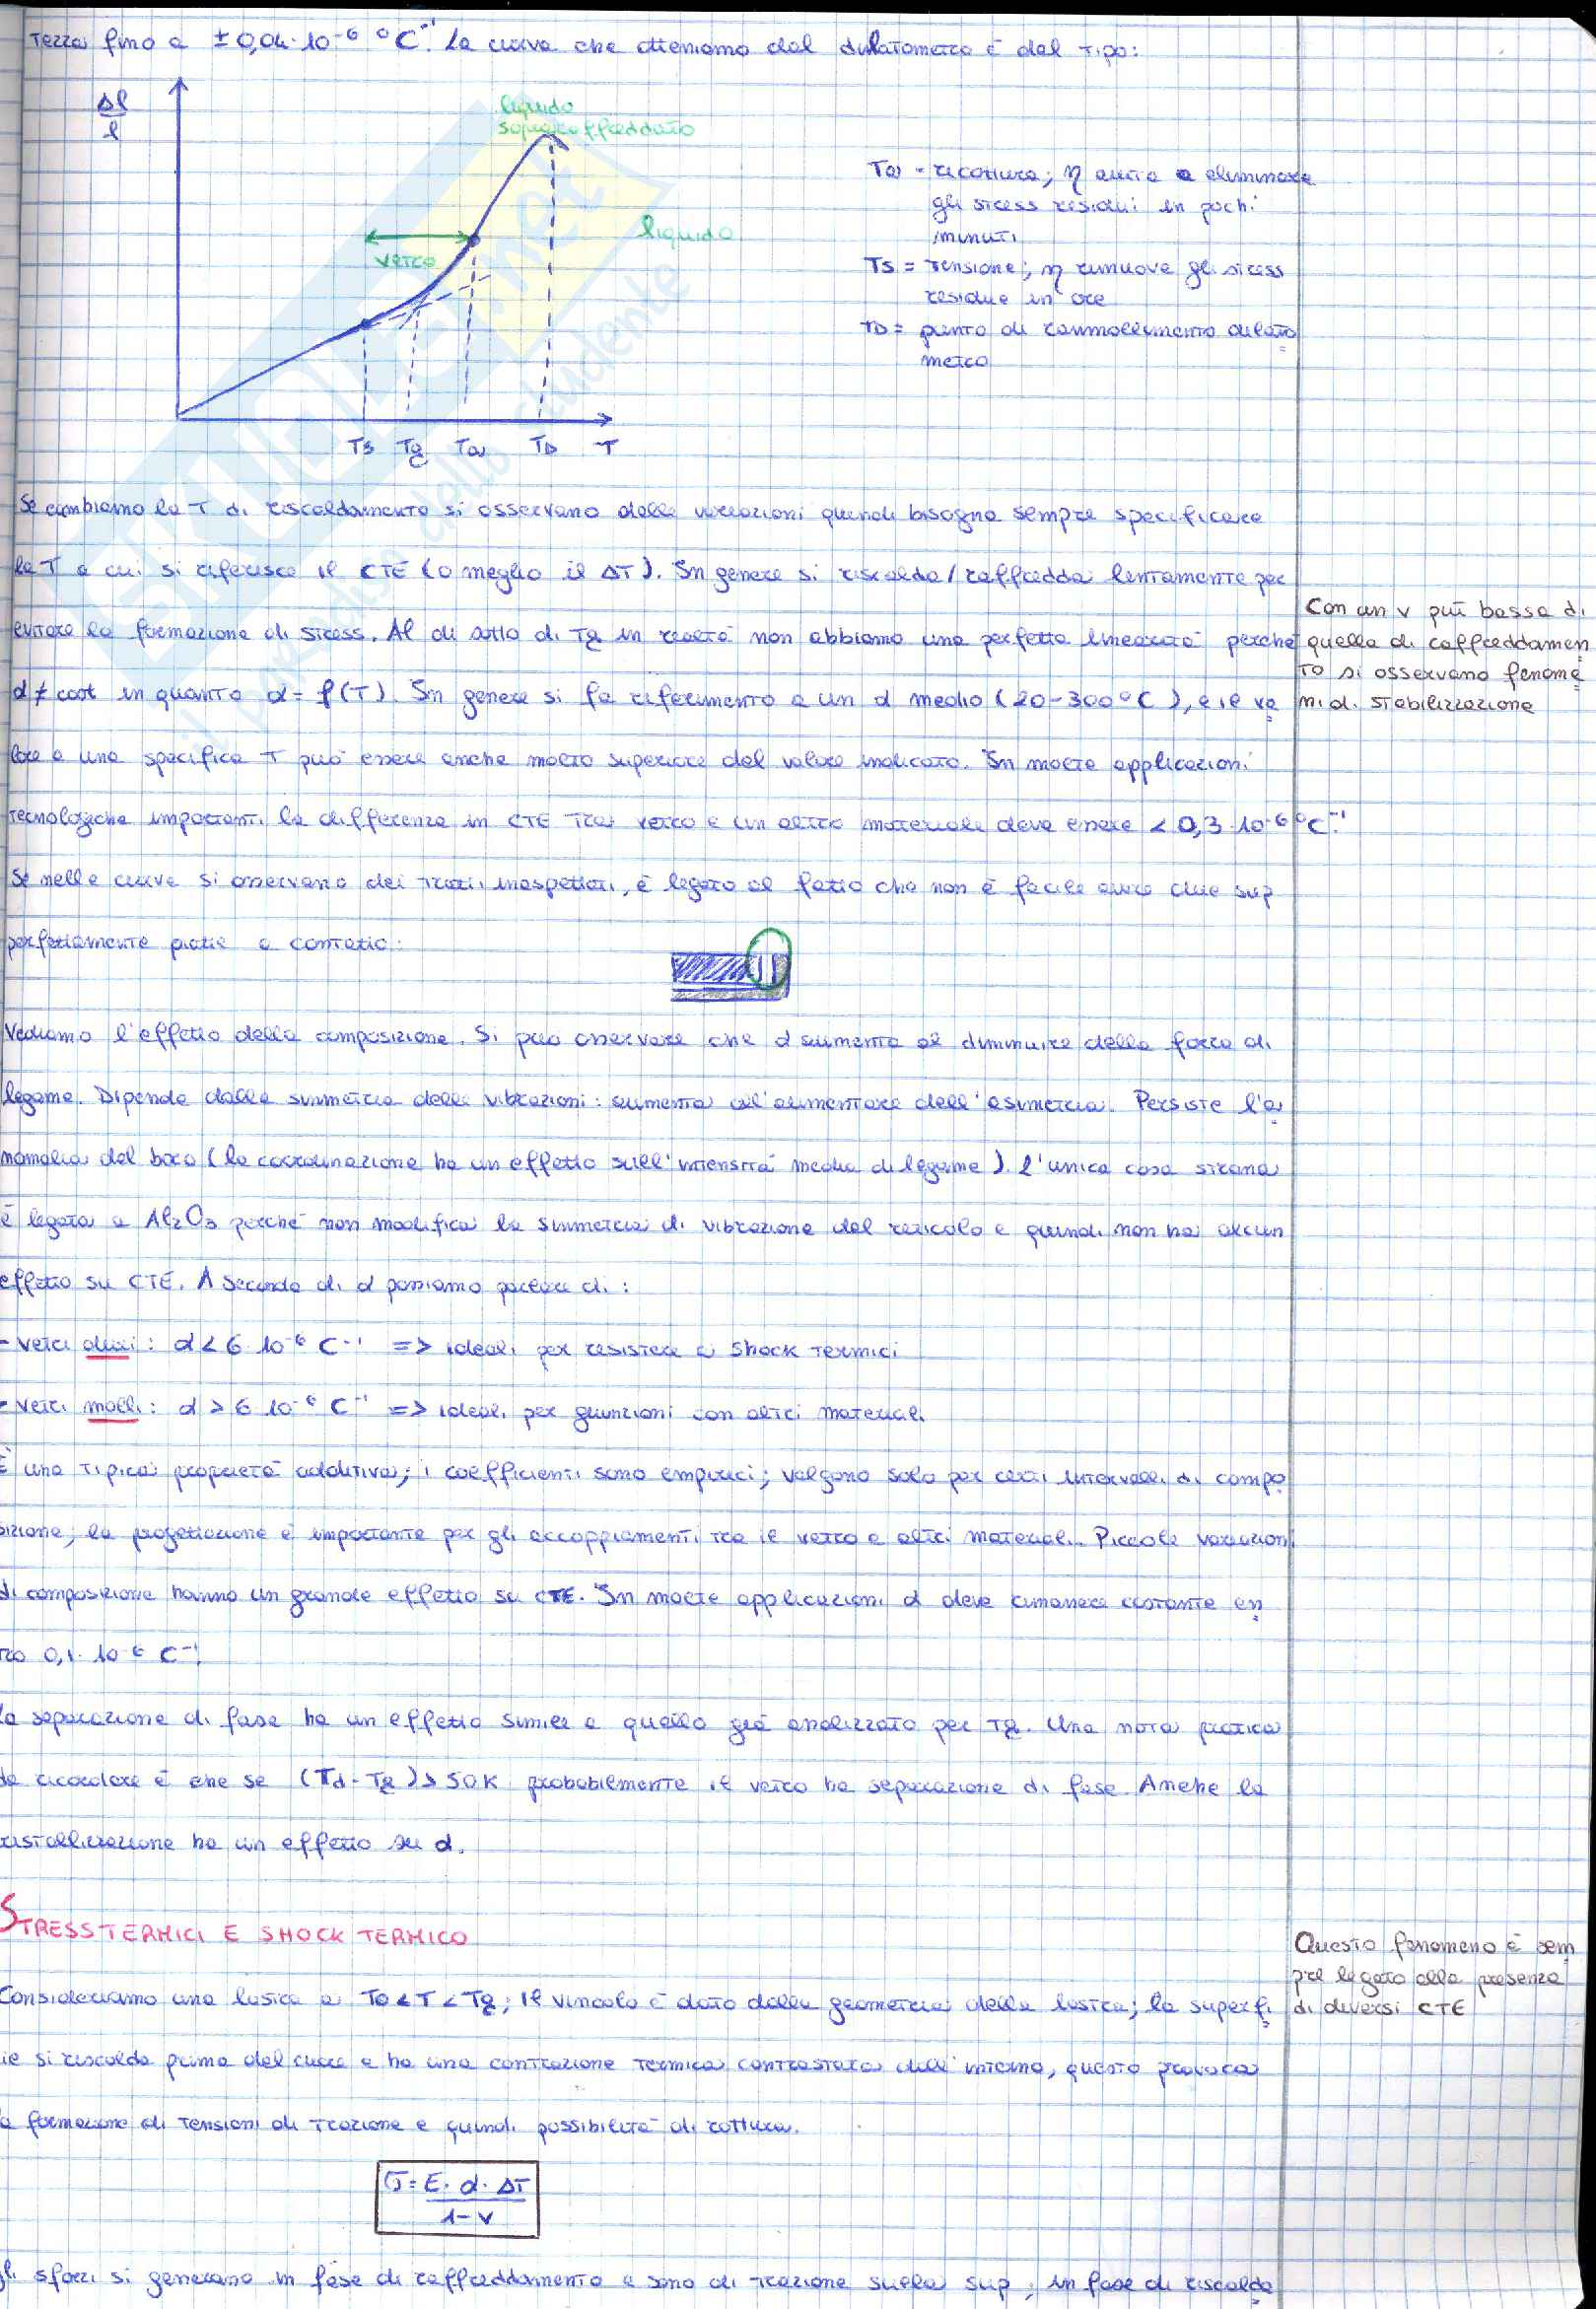 tezza fino a ±0,04·10⁻⁶ °C⁻¹. La curva che otteniamo dal dilatometro è del tipo:
Δl
l
liquido
sopraraffreddato
liquido
vetro
Ts Tg Ta TD T
Ta = ricottura; η aiuta a eliminare
gli stress residui in pochi
minuti
Ts = tensione; η rimuove gli stress
residue in ore
TD = punto di rammollimento dilato
metrico
Se cambiamo la T di riscaldamento si osservano delle variazioni quindi bisogna sempre specificare
la T a cui si riferisce il CTE (o meglio il ΔT). In genere si riscalda/raffredda lentamente per
evitare la formazione di stress. Al di sotto di Tg in realtà non abbiamo una perfetta linearità perche
α ≠ cost in quanto α = f(T). In genere si fa riferimento a un α medio (20-300°C), e il va
lore a una specifica T può essere anche molto superiore del valore indicato. In molte applicazioni
tecnologiche importanti la differenza in CTE tra vetro e un altro materiale deve essere < 0,3·10⁻⁶ °C⁻¹.
Con un v più bassa di
quella di raffreddamen
to si osservano fenome
ni di stabilizzazione
Se nelle curve si osservano dei tratti inaspettati, è legato al fatto che non è facile avere due sup
perfettamente piatte a contatto:
Vediamo l'effetto della composizione. Si può osservare che α aumenta al diminuire della forza di
legame. Dipende dalla simmetria delle vibrazioni: aumenta all'aumentare dell'asimetria. Persiste l'a
nomalia del boro (la coordinazione ha un effetto sull'intensità media di legame). l'unica cosa strana
è legata a Al₂O₃ perché non modifica la simmetria di vibrazione del reticolo e quindi non ha alcun
effetto su CTE. A seconda di α possiamo parlare di:
- vetri duri: α < 6 10⁻⁶ C⁻¹ => ideali per resistere a shock termici
- vetri molli: α > 6 10⁻⁶ C⁻¹ => ideali per giunzioni con altri materiali
È una tipica proprietà additiva; i coefficienti sono empirici; valgono solo per certi intervalli di compo
sizione; la progettazione è importante per gli accoppiamenti tra il vetro e altri materiali. Piccole variazioni
di composizione hanno un grande effetto su CTE. In molte applicazioni α deve rimanere costante en
tro 0,1·10⁻⁶ C⁻¹.
La separazione di fase ha un effetto simile a quello già analizzato per Tg. Una nota pratica
da ricordare è che se (Td-Tg) > 50K probabilmente il vetro ha separazione di fase. Anche la
cristallizzazione ha un effetto su α.
STRESS TERMICI E SHOCK TERMICO
Consideriamo una lastra a T0 < T < Tg; il vincolo è dato dalla geometria della lastra; la superfi
cie si riscalda prima del cuore e ha una contrazione termica contrastata dall'interno, questo provoca
la formazione di tensioni di trazione e quindi possibilità di rottura.
Questo fenomeno è sem
pre legato alla presenza
di diversi CTE
σ = E · α · ΔT
1-ν
gli sforzi si generano in fase di raffreddamento e sono di trazione sulla sup; in fase di riscalda